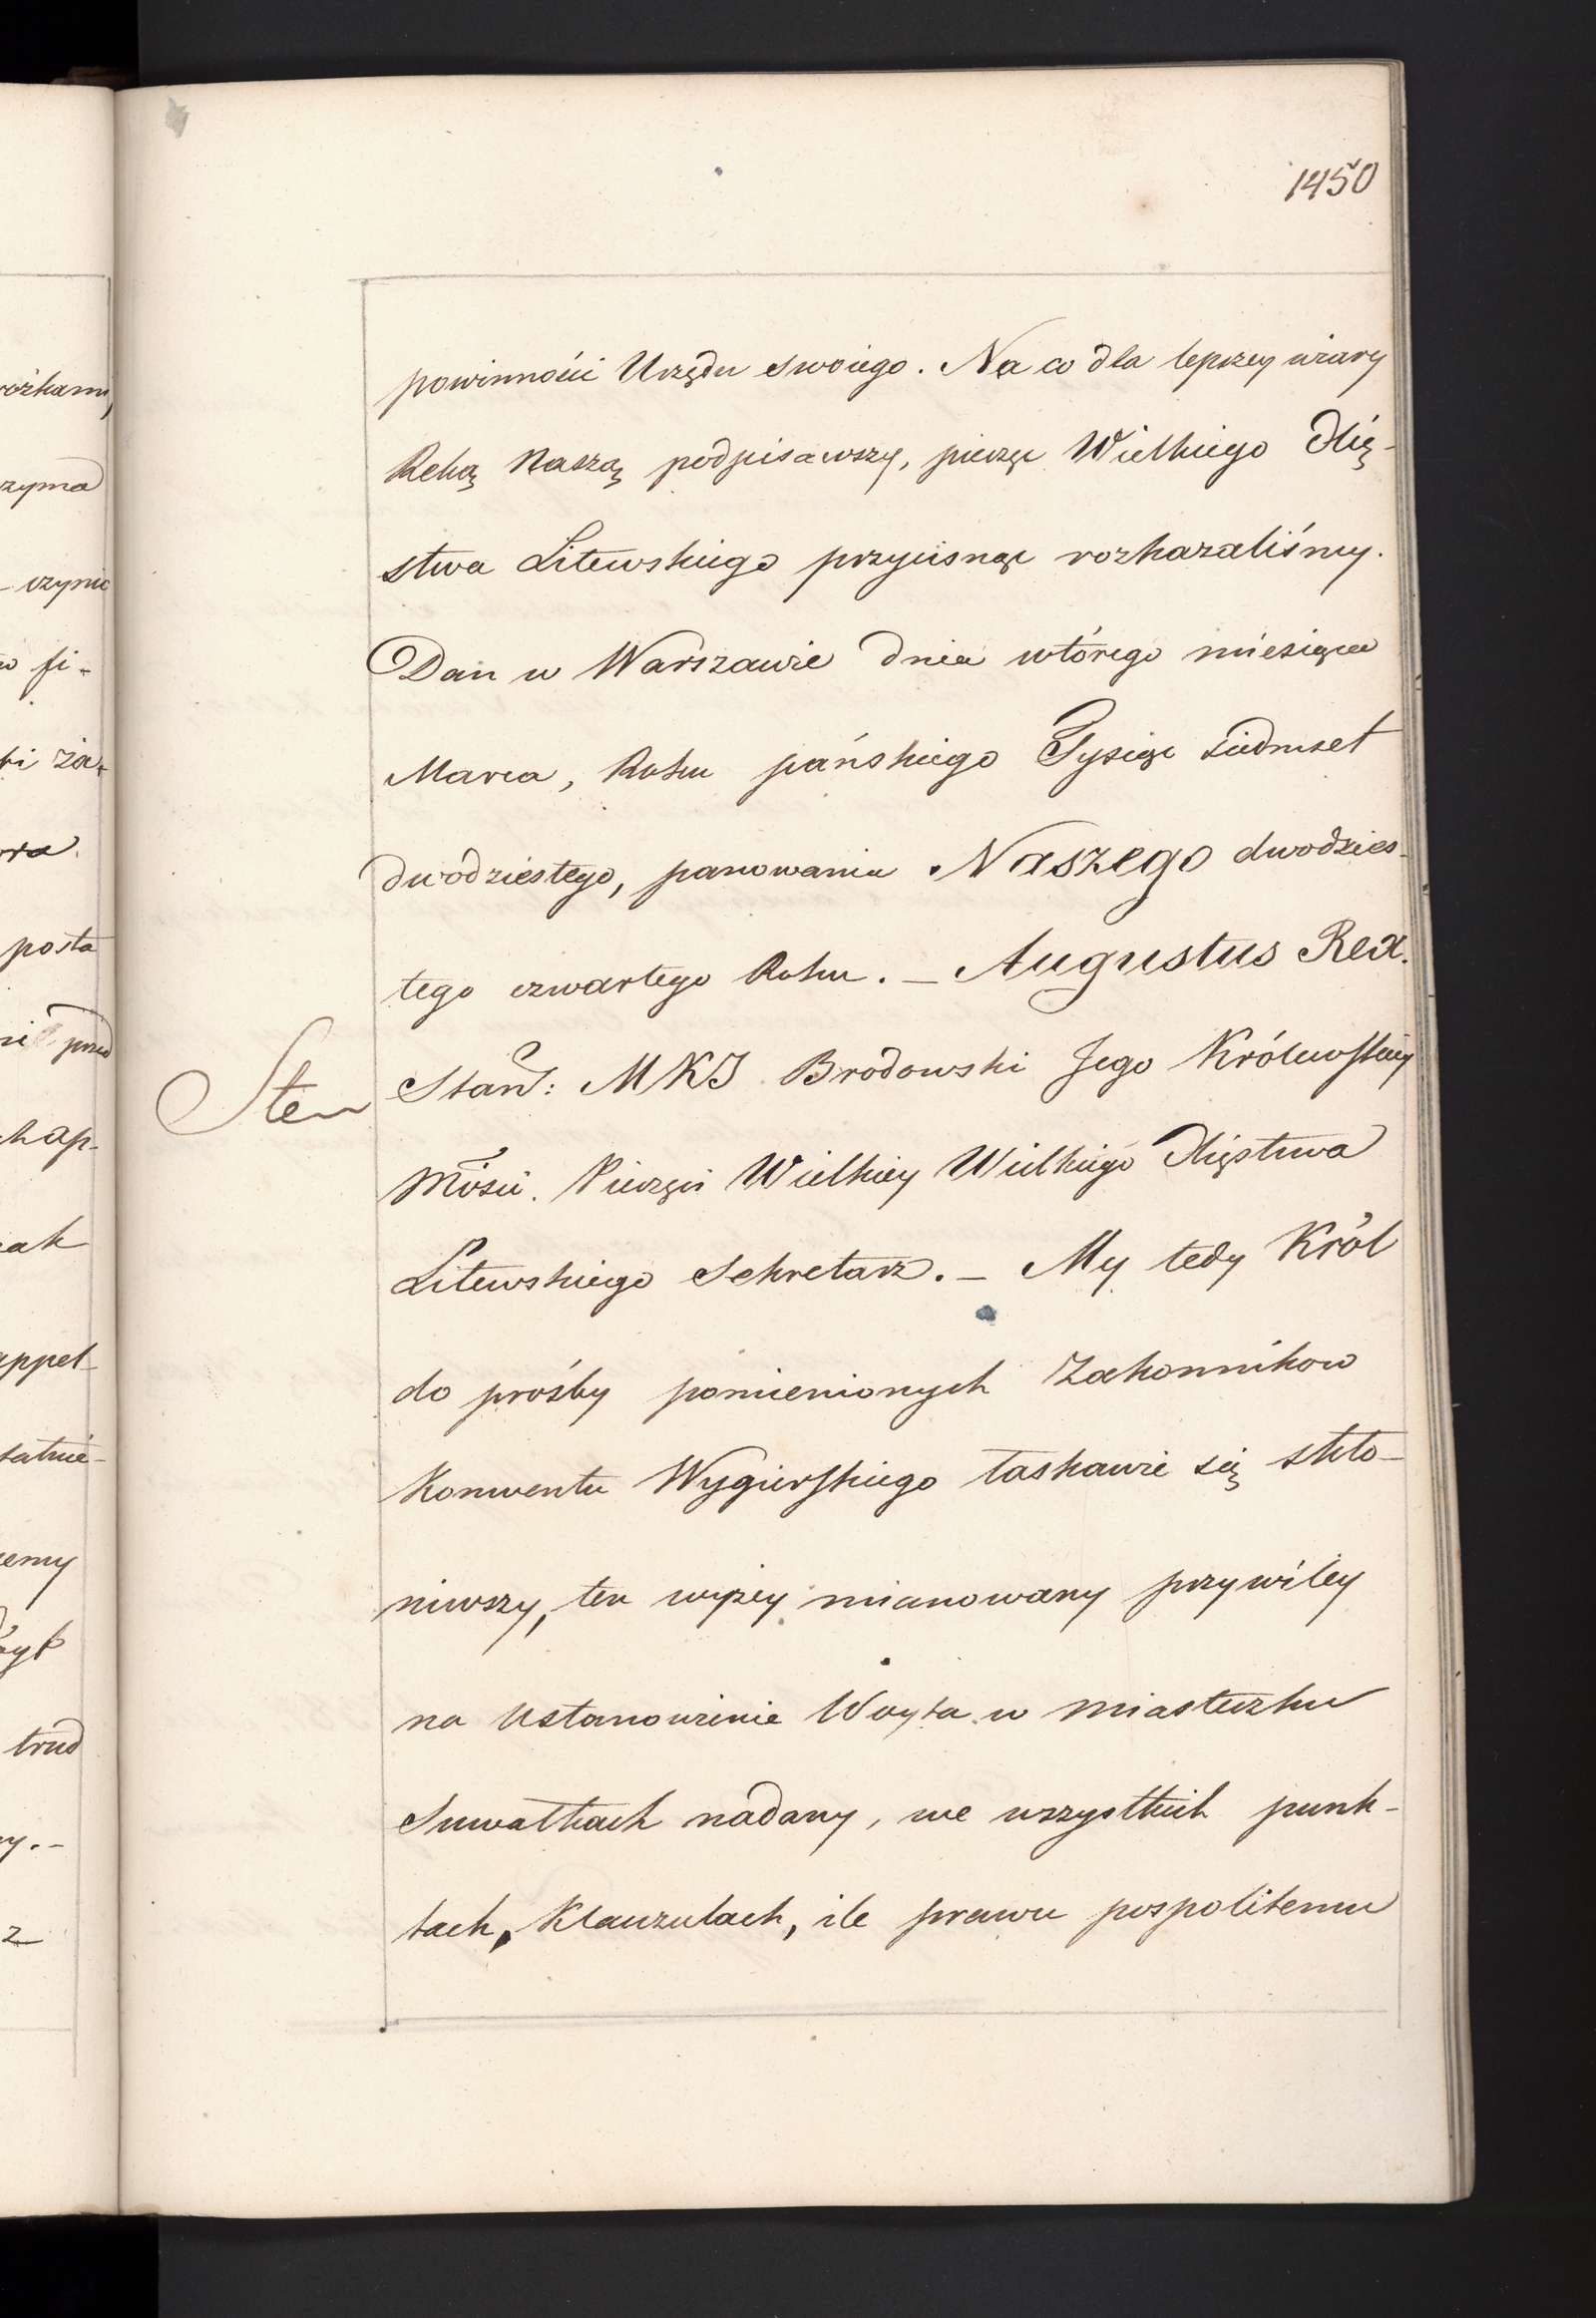 1450
powinności Urzędu swoiego. Na co dla lepszey wiary
Ręką Naszą podpisawszy, pieczęć Wielkiego Xię-
stwa Litewskiego przycisnąć rozkazaliśmy.
Dan w Warszawie dnia wtórego miesiąca
Marca, Roku pańskiego Tysiąc siedmset
dwodziestego, panowania Naszego dwodzies-
tego czwartego Roku. – Augustus Rex.
Stan: MKJ Brodowski Jego Królewskiey
Mości. Pieczęci Wielkiey Wielkiego Xięstwa
Litewskiego Sekretarz. – My tedy Król
do prośby pomienionych Zakonnikow
Konwentu Wygierskiego łaskawie się skło-
niwszy, ten wyżey mianowany przywiley
na ustanowienie Woyta w miasteczku
Suwałkach nadany, we wszystkich punk-
tach, Klauzulach, ile prawu pospolitemu
rożkami,
czynic
w fi-
posta
przed
appel-
trud
z